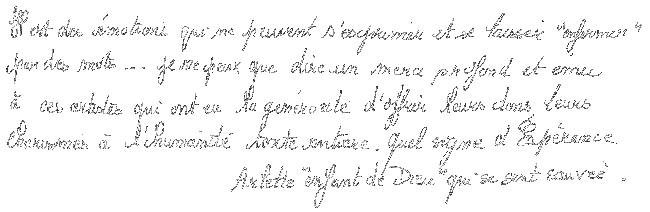 Il est des émotions qui ne peuvent s'exprimer et se laisser "enfermer"
par des mots... je ne peux que dire un merci profond et ému
à ces artistes qui ont eu la générosité d'offrir leurs dons leurs
charismes à l'humanité toute entière. Quel signe d'Espérance
Arlette "enfant de Dieu" qui se sent sauvée.